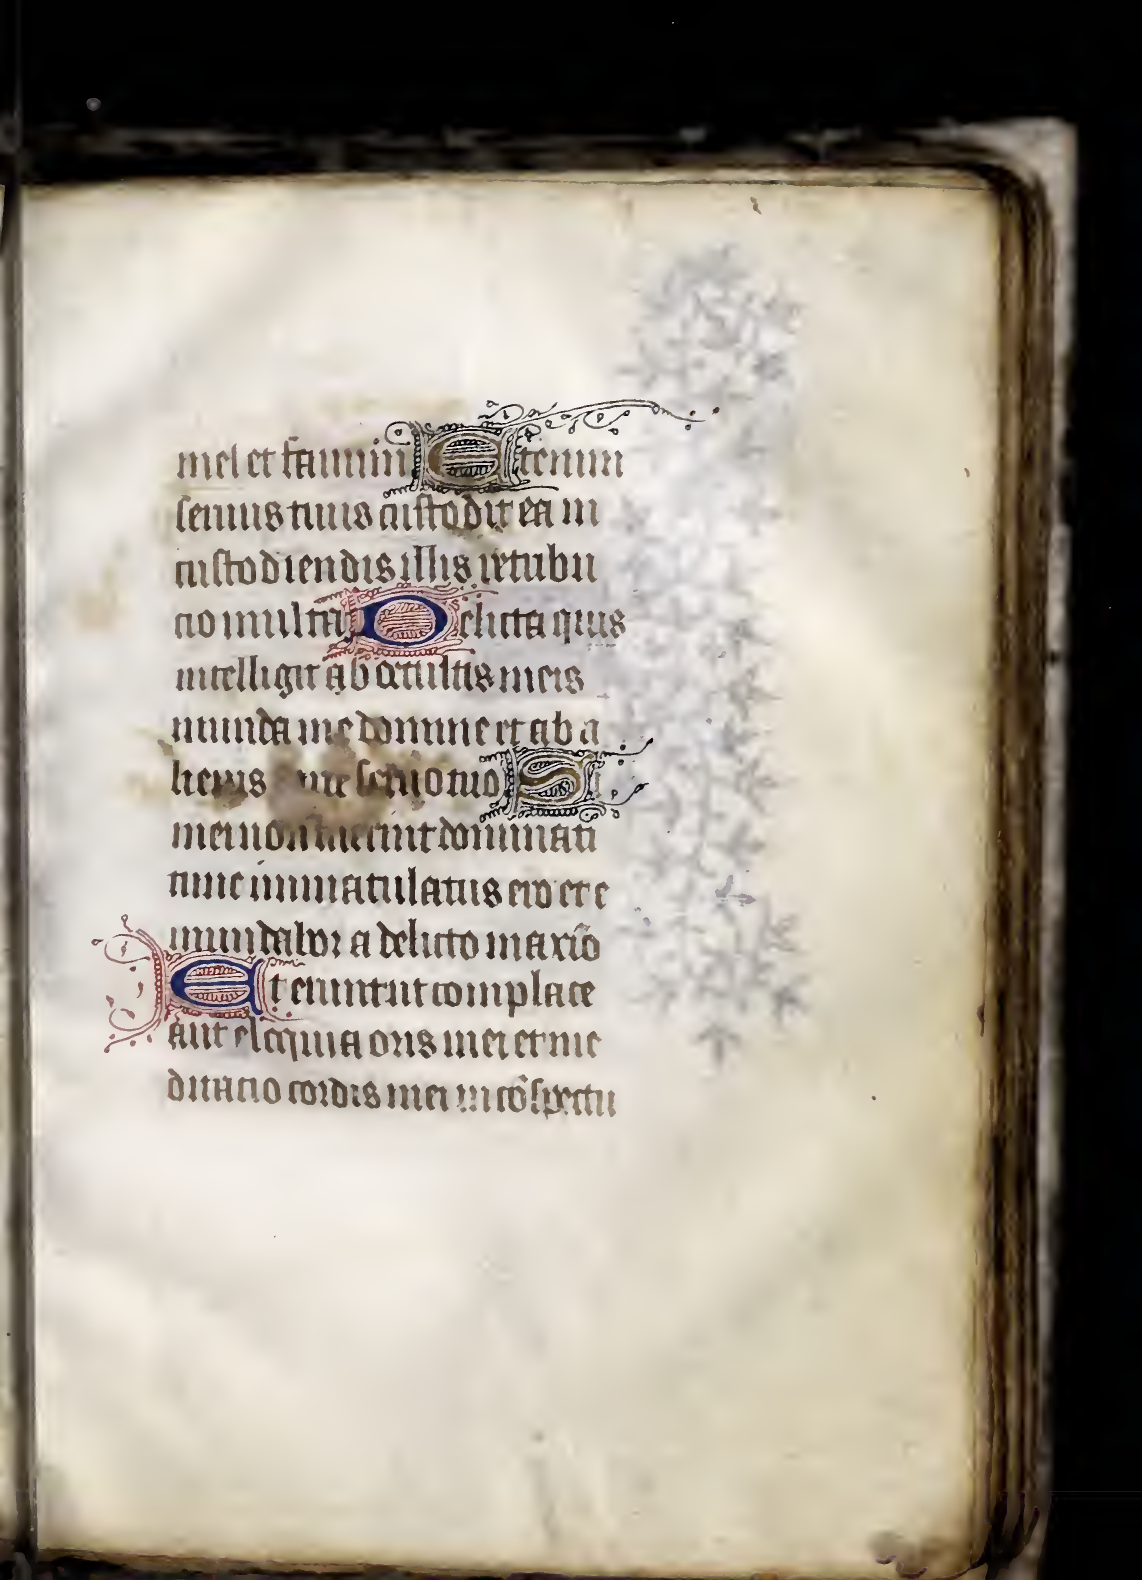 mel et fauum Etenim
seruus tuus custodit ea in
custodiendis illis retribu
cio multa Delicta quis
intelligit ab occultis meis
munda me domine et ab a
lienis seruo tuo Si
mei non fuerint dominati
tunc immaculatus ero et e
mundabor a delicto maxīo
Et erunt ut complace
ant eloquia oris mei et me
ditacio cordis mei in cōspectu